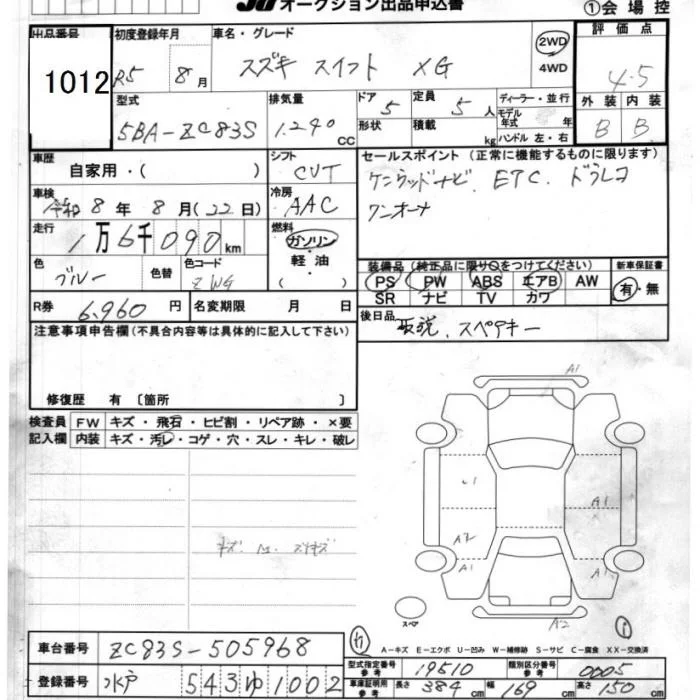 オークション出品申込書
①会場控
出品番号 初度登録年月 車名・グレード 評価点
1012 R5 8月 スズキ スイフト XG 2WD 4WD 4.5
型式 排気量 ドア 定員 ディーラー・並行 外装 内装
5BA-ZC83S 1.240cc 5 5人 モデル年式 年 B B
形状 積載 kg ハンドル 左・右
車歴 自家用・( ) シフト CVT セールスポイント (正常に機能するものに限ります)
車検 令和8年8月(22日) 冷房 AAC ケンウッドナビ、ETC、ドラレコ
ワンオーナ
走行 1万6千090km 燃料 ガソリン
軽油
( )
色 ブルー 色替 色コード ZWG
装備品 (純正品に限り○をつけてください) 新車保証書
PS PW ABS エアB AW 有・無
SR ナビ TV カワ
R券 6,960円 名変期限 月 日
後日品 取説、スペアキー
注意事項申告欄 (不具合内容等は具体的に記入して下さい)
修復歴 有 〔箇所 〕
検査員 FW キズ・飛石・ヒビ割・リペア跡・×要
記入欄 内装 キズ・汚レ・コゲ・穴・スレ・キレ・破レ
A1
A1
A2
A1 A1
スペア A2
A-キズ E-エクボ U-凹み W-補修跡 S-サビ C-腐食 XX-交換済
車台番号 ZC83S-505968
型式指定番号 参考 19510 類別区分番号 参考 0005
登録番号 水戸 543 ゆ 1002
車庫証明用 参考 長さ 384cm 幅 169cm 高さ 150cm